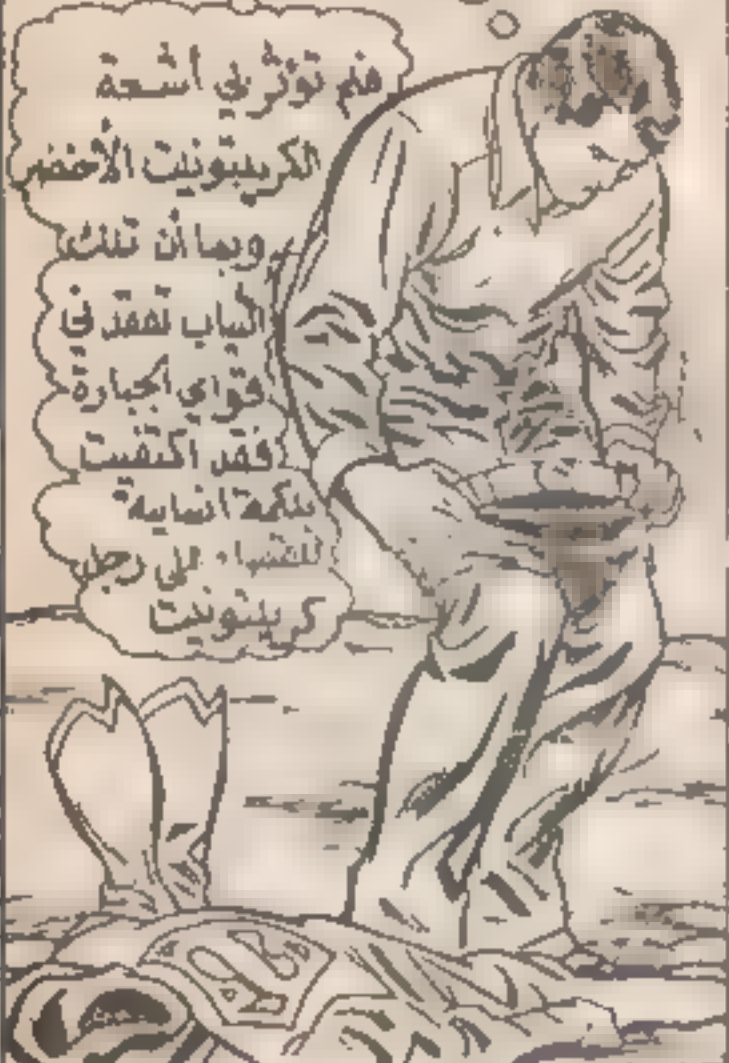 فلم تؤثر بي أشعة
الكريبتونيت الأخضر
وبما أن تلك
الثياب تفقد في
قواي الجبارة
فقد اكتفيت
بلكمة انسانية
للقضاء على رجل
كريبتونيت